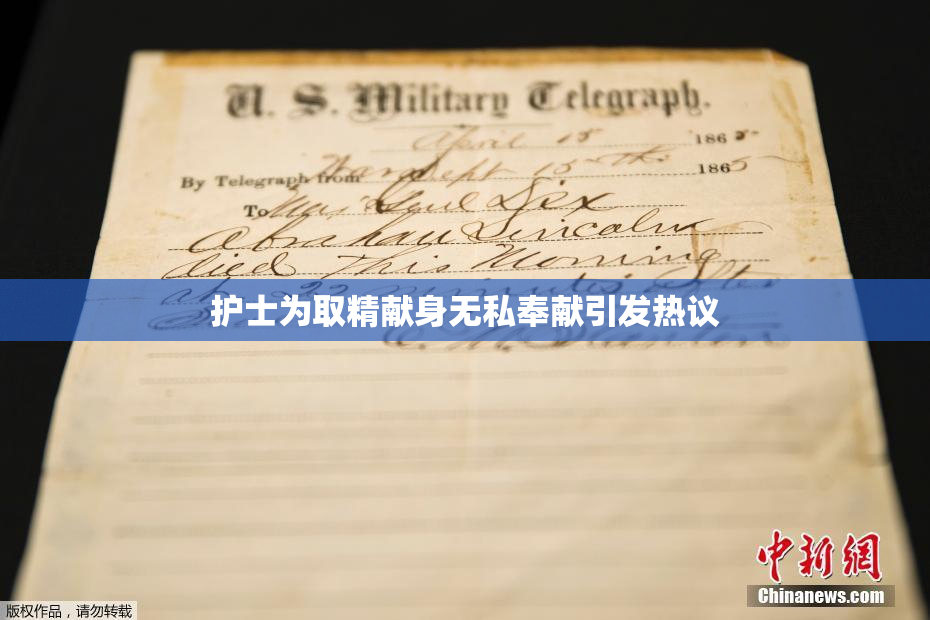 U. S. Military Telegraph.
April 15 1865
By Telegraph from War Dept 15th 1865
To Maj Genl Dix
Abraham Lincoln
died This Morning
at 22 minutes after
护士为取精献身无私奉献引发热议
E. M. Stanton
中新網
Chinanews.com
版权作品，请勿转载